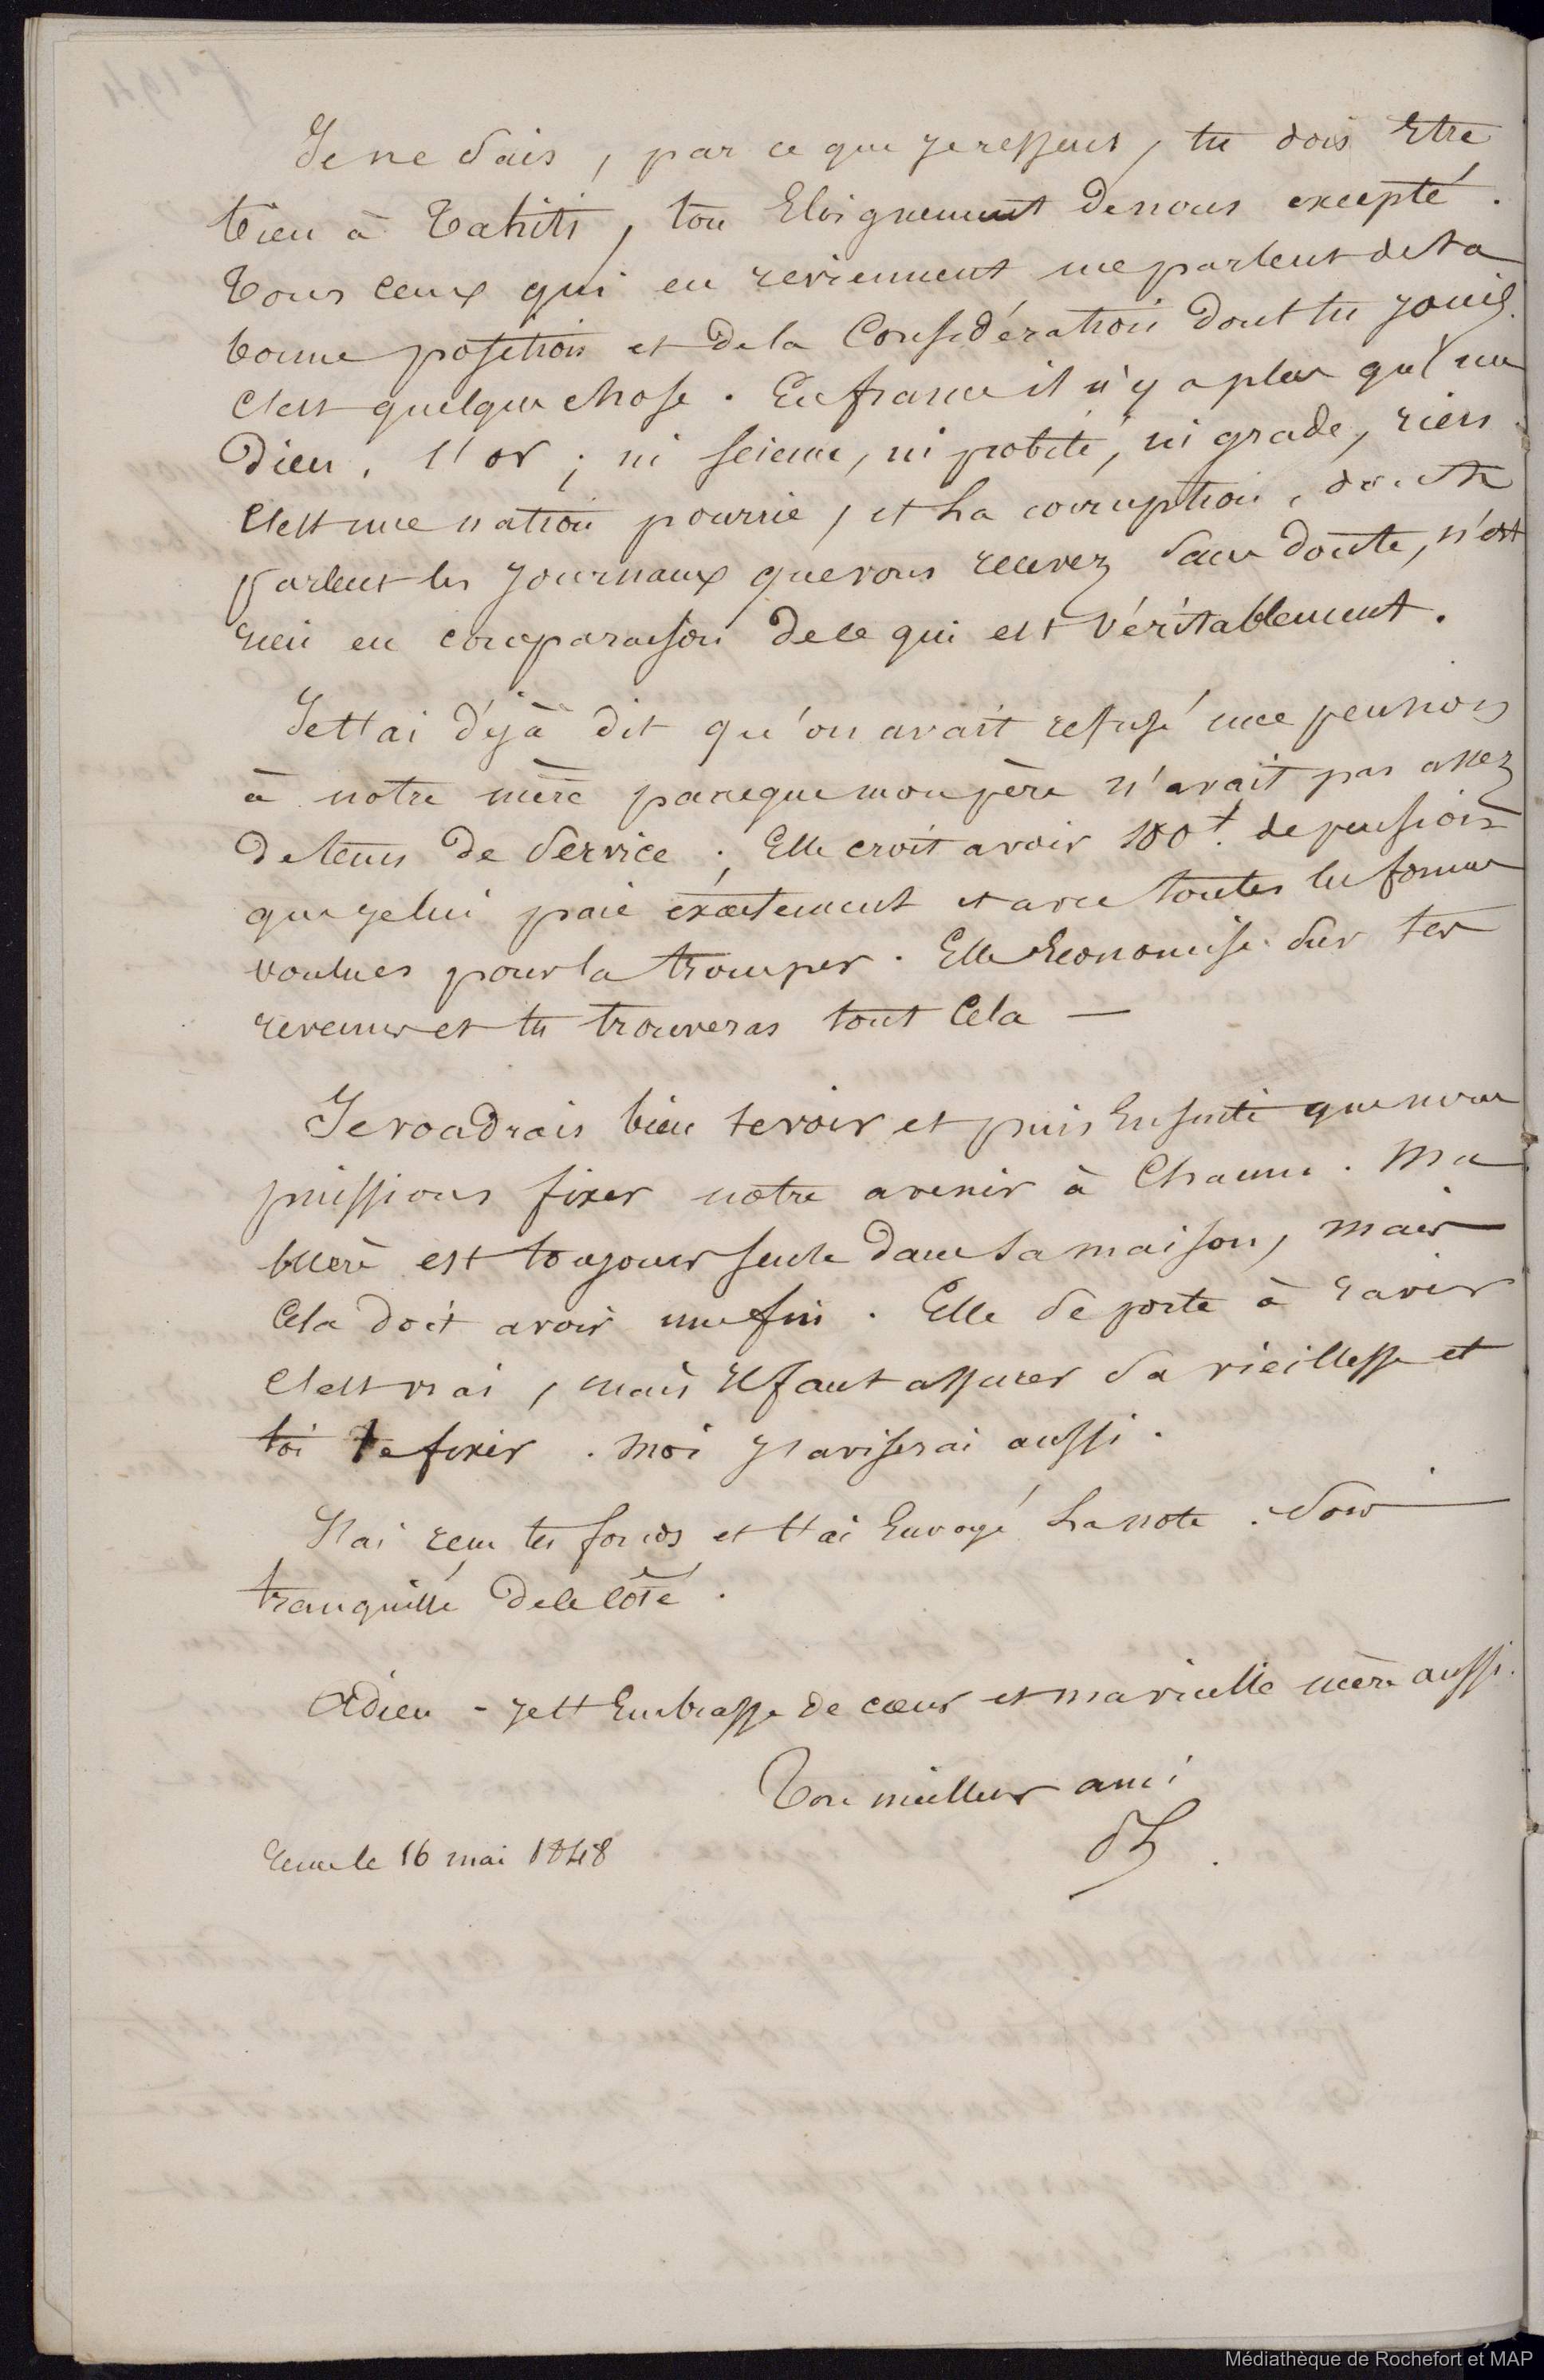 Je ne sais, par ce que je ressens, tu dois Etre
bien à Tahiti, ton Eloignement de nous excepté.
Tous ceux qui en reviennent me parlent de ta
bonne position et de la Considération dont tu jouis.
C'est quelque chose. En france il n'y a plus qu'un
Dieu, l'or; ni science, ni probité, ni grade, rien.
C'est une nation pourrie, et La corruption, dont te
parlent les journaux que vous recevez sans doute, n'est
rien en comparaison de ce qui est véritablement.
Je t'ai déjà dit qu'on avait refusé une pension
à notre mère parceque mon père n'avait pas assez
de tems de service; Elle croit avoir 100 f. de pension
que je lui paie exactement et avec toutes les formes
voulues pour la tromper. Elle Economise sur tes
revenus et tu trouveras tout Cela —
Je voudrais bien te voir et puis Ensuite que nous
puissions fixer notre avenir à Chacun. Ma
Mère est toujours seule dans sa maison, mais
Cela doit avoir une fin. Elle se porte à ravir
C'est vrai, mais Il faut assurer sa vieillesse et
toi te fixer. Moi j'aviserai aussi.
J'ai reçu tes fonds et t'ai Envoyé La note. Sois
tranquille de ce côté.
Adieu - je t'Embrasse de cœur et ma vieille mère aussi.
Ton meilleur ami
Reçue le 16 mai 1848
Médiathèque de Rochefort et MAP